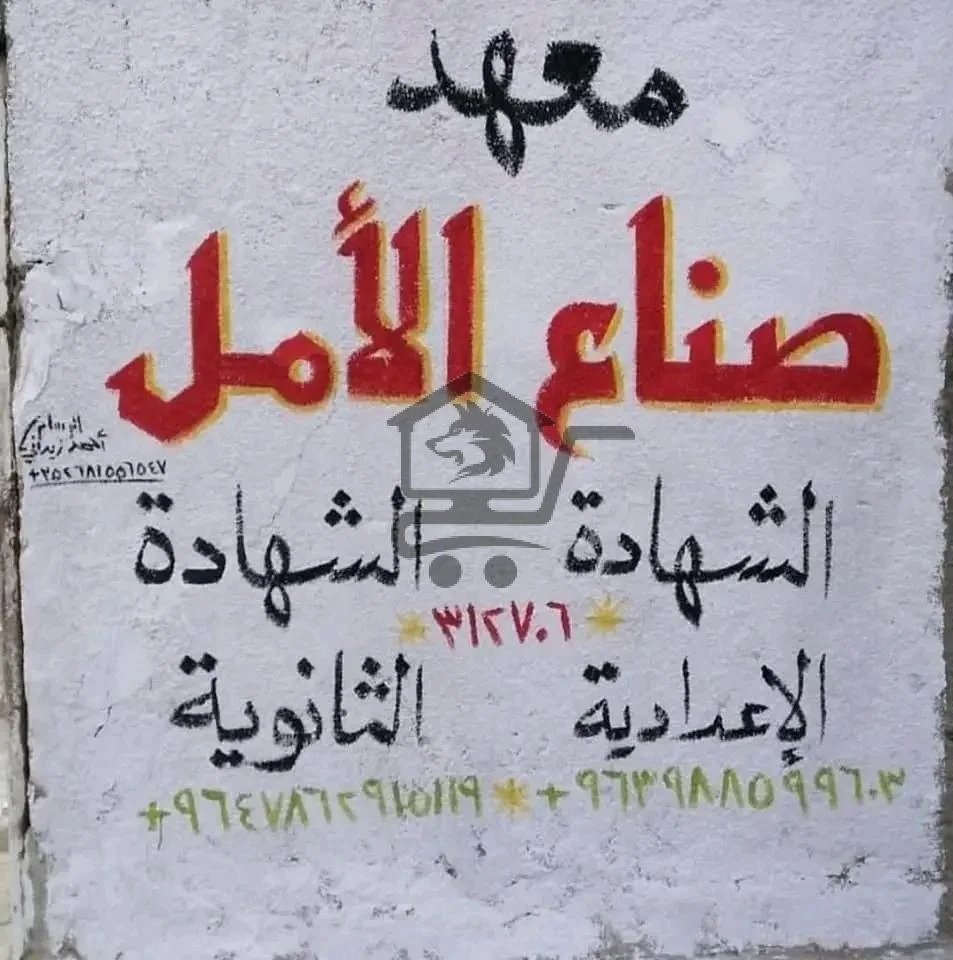 معهد
صناع الأمل
الرسام
أحمد زيداني
+٣٥٢٦٨١٥٥٦٥٤٧
الشهادة الشهادة
٣١٢٧٠٦
الإعدادية الثانوية
+٩٦٣٩٨٨٥٩٩٦٠٣
+٩٦٤٧٨٦٢٩١٥١١٩